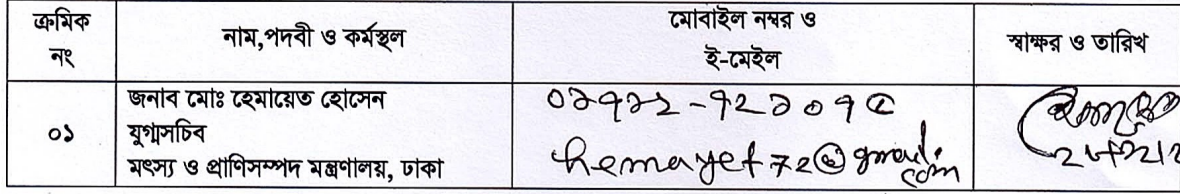 ক্রমিক
নং
নাম,পদবী ও কর্মস্থল
মোবাইল নম্বর ও
ই-মেইল
স্বাক্ষর ও তারিখ
০১
জনাব মোঃ হেমায়েত হোসেন
যুগ্মসচিব
মৎস্য ও প্রাণিসম্পদ মন্ত্রণালয়, ঢাকা
hemayet72@gmail.com